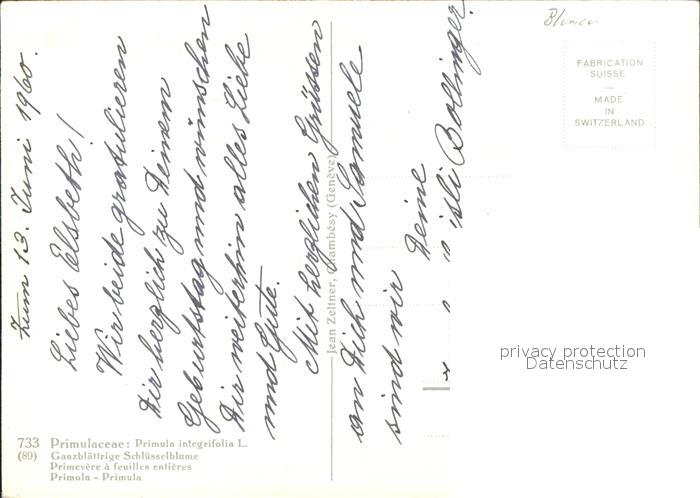 Zum 13. Juni 1960.
Liebes Elsbeth!
Wir beide gratulieren
Dir herzlich zu Deinem
Geburtstag und wünschen
Dir weiterhin alles Liebe
und Gute.
Mit herzlichen Grüssen
an Dich und Samuele
sind wir
Deine
Bollinger.
Blumen
FABRICATION
SUISSE
—
MADE
IN
SWITZERLAND
Jean Zeltner, Chambésy (Genève)
privacy protection
Datenschutz
733 Primulaceae: Primula integrifolia L.
(89) Ganzblättrige Schlüsselblume
Primevère à feuilles entières
Primola - Primula